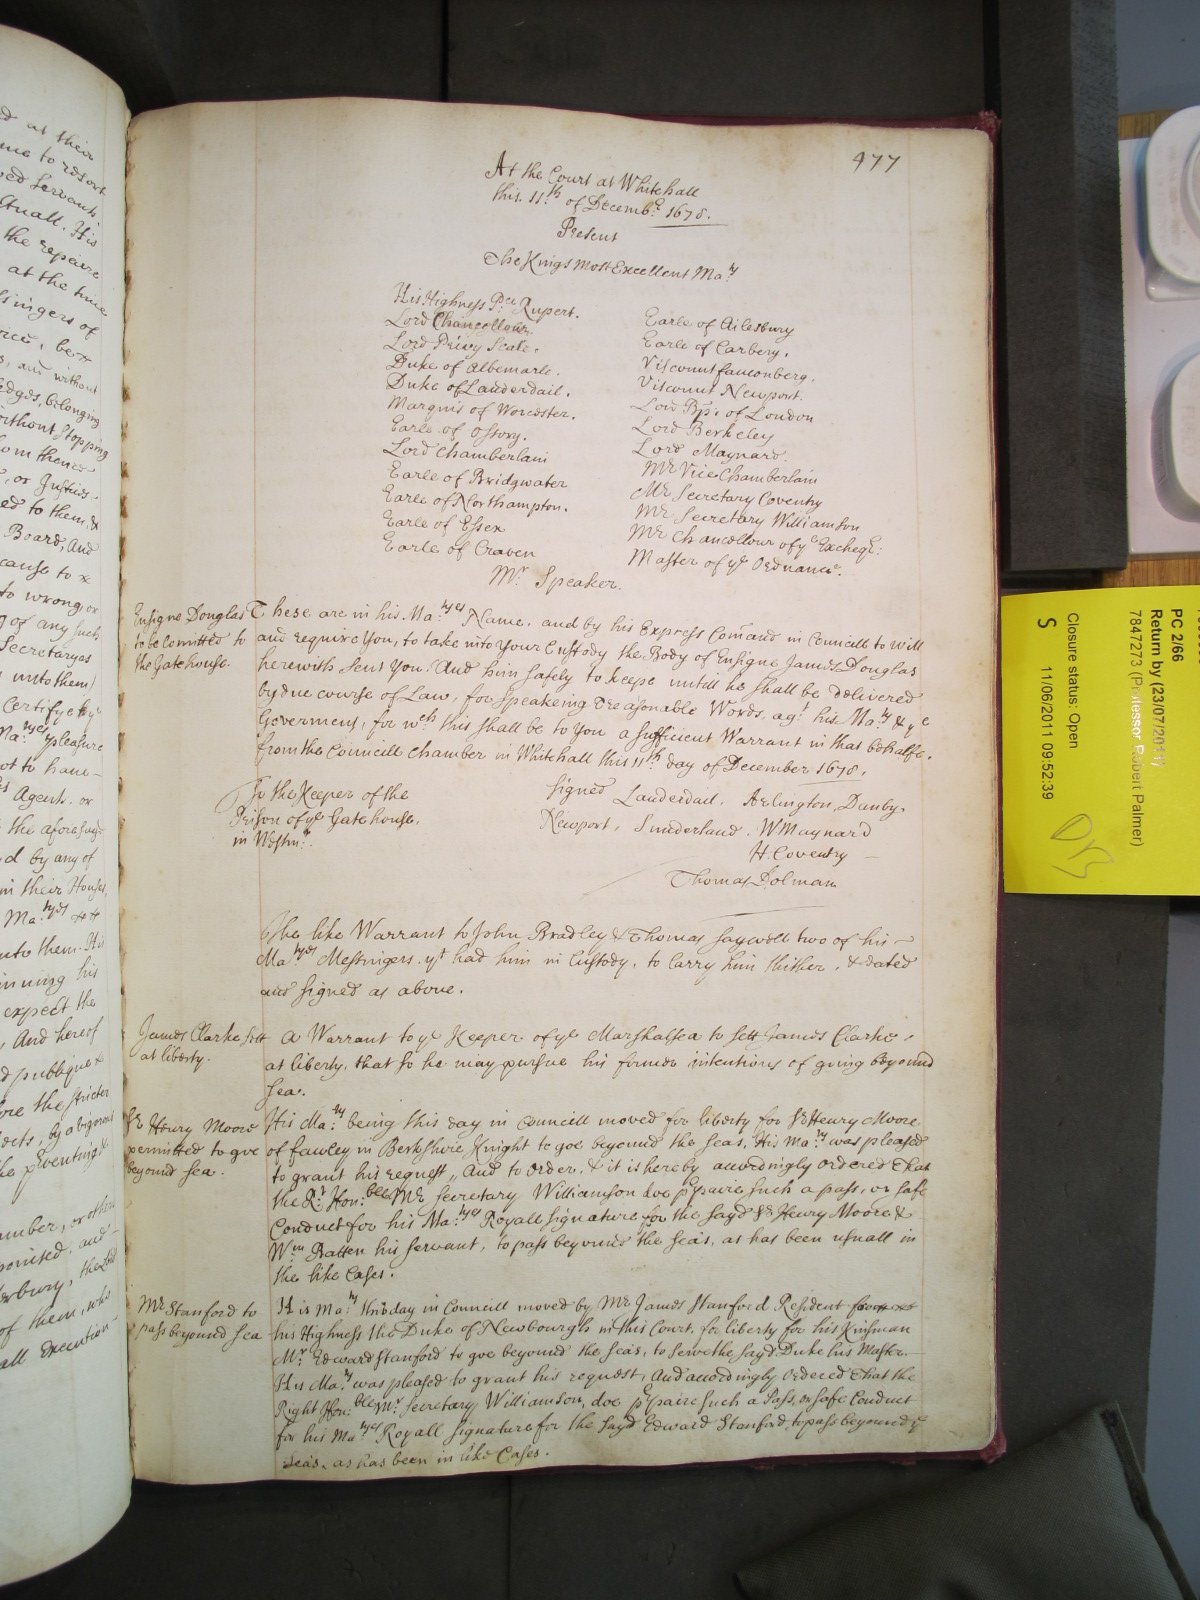 477
At the Court at Whitehall
this 11th of Decembr 1678.
Present
The Kings Most Excellent Maty
His Highness Pce Rupert.
Lord Chancellour
Lord Privy Seale.
Duke of Albemarle.
Duke of Lauderdail.
Marquis of Worcester.
Earle of Ossory.
Lord Chamberlain
Earle of Bridgwater
Earle of Northampton.
Earle of Essex
Earle of Craven
Earle of Ailesbury
Earle of Carbery.
Viscount fauconberg.
Viscount Newport.
Lord Bp. of London
Lord Berkeley
Lord Maynard.
Mr Vice Chamberlain
Mr Secretary Coventry
Mr Secretary Williamson
Mr Chancellour of ye Excheqr:
Master of ye Ordnance.
Mr Speaker.
Ensigne Douglas
to be Comitted to
the Gatehouse.
These are in his Matyes Name, and by his Express Comand in Councill to will
and require You, to take into Your Custody the Body of Ensigne James Douglas
herewith sent You. And him safely to keepe untill he shall be delivered
by due course of Law, for Speakeing Treasonable Words, agt his Maty & ye
Government, for wch this shall be to You a sufficient Warrant in that behalfe.
from the Councill Chamber in Whitehall this 11th day of December 1678.
To the Keeper of the
Prison of ye Gatehouse.
in Westmr.
Signed Lauderdail. Arlington, Danby.
Newport, Sunderland. W Maynard
H. Coventry
Thomas Dolman
The like Warrant to John Bradley & Thomas Saywell two of his
Matyes Messengers. yt had him in Custody, to Carry him thither, & dated
and signed as above.
James Clarke sett
at liberty.
A Warrant to ye Keeper of ye Marshalsea to sett James Clarke
at liberty, that so he may pursue his former intentions of going beyound
Sea.
Sr Henry Moore
permitted to goe
beyound Sea.
His Maty being this day in Councill moved for liberty for Sr Henry Moore
of fawley in Berkshire Knight to goe beyound the Seas, His Maty was pleased
to grant his request, And to Order, & it is hereby accordingly ordered That
the Rt Honble Mr Secretary Williamson doe prpaire such a pass, or safe
Conduct for his Matyes Royall Signature for the sayd Sr Henry Moore &
Wm Batten his servant, to pass beyound the Seas, as has been usuall in
the like Cases.
Mr Stanford to
pass beyound Sea
His Maty this day in Councill moved by Mr James Stanford Resident from
his Highness the Duke of Newbourgh in this Court, for liberty for his Kinsman
Mr Edward Stanford to goe beyound the Seas, to serve the sayd Duke his Master.
His Maty was pleased to grant his request, And accordingly Ordered That the
Right Honble Mr Secretary Williamson, doe prpaire such a Pass, or safe Conduct
for his Matyes Royall Signature for the sayd Edward Stanford, to pass beyound ye
Seas, as has been in like Cases.
PC 2/66
Return by (23/07/2011)
7847273 (Professor Robert Palmer)
Closure status: Open
S 11/06/2011 09:52:39